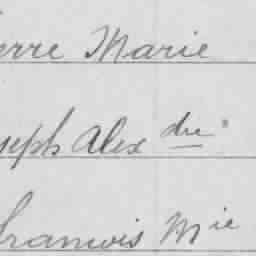 ierre Marie
seph Alex dre
François Mie